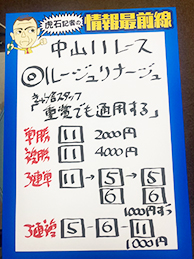 虎石記者の
情報最前線
中山11レース
◎ルージュリナージュ
スタッフ
「重賞でも通用する」
単勝 11 2000円
複勝 11 4000円
3連単 11→5→5
6 6
1000円ずつ
3連複 5-6-11
1000円